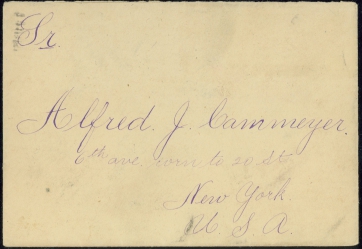 Sr.
Alfred. J. Cammeyer.
6th ave. corn to 20 St
New York.
U S. A.